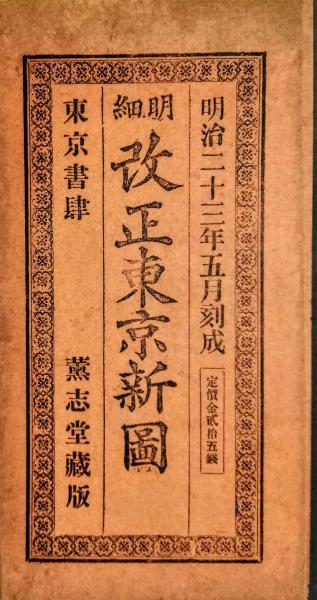 明治二十三年五月刻成
定價金貳拾五錢
明細
改正東京新圖
東京書肆 薫志堂藏版